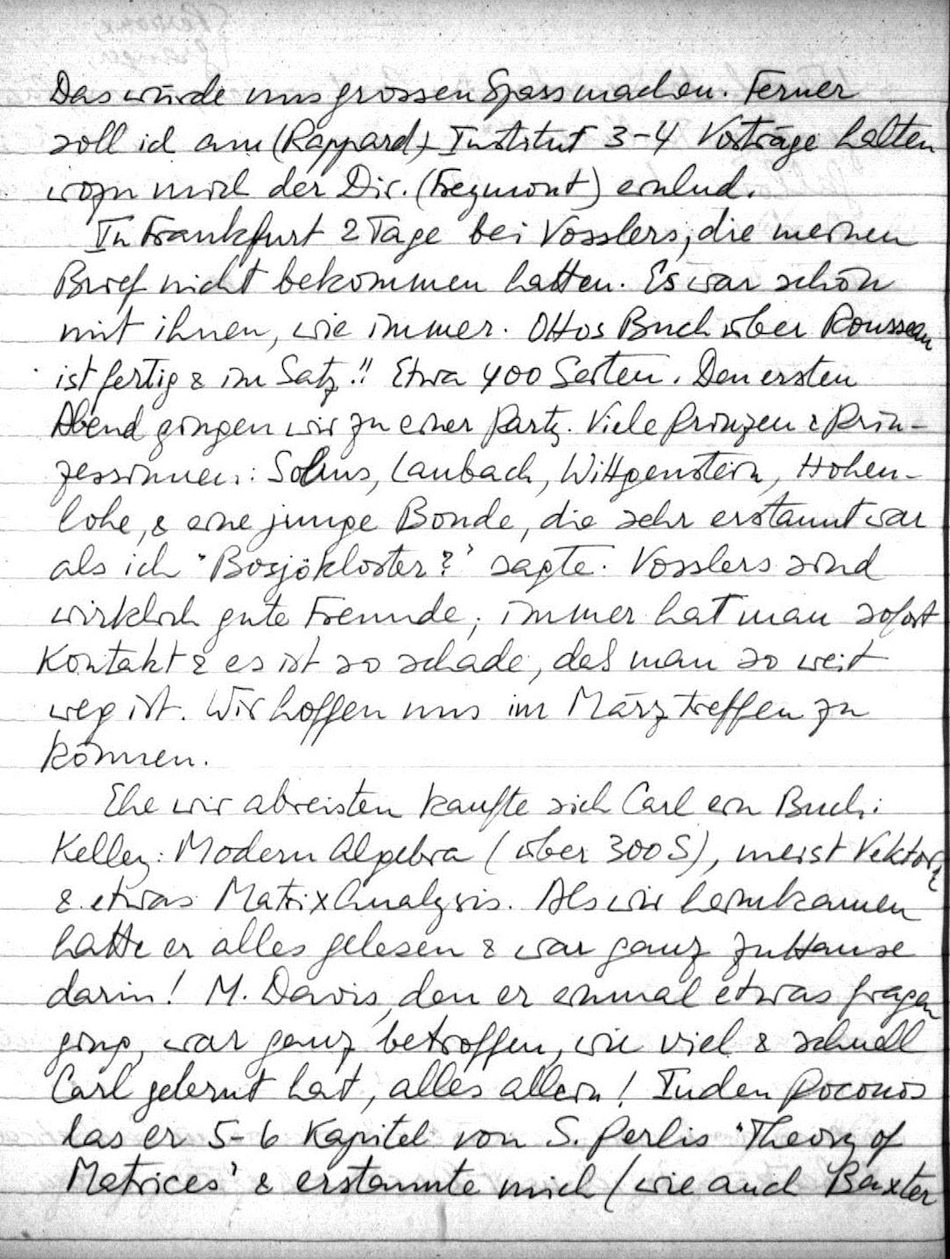 Das würde uns grossen Spass machen. Ferner
soll ich am (Rappard) Institut 3-4 Vorträge halten
wozu mich der Dir. (Freymont) einlud.
In Frankfurt 2 Tage bei Vosslers, die meinen
Brief nicht bekommen hatten. Es war schön
mit ihnen, wie immer. Ottos Buch über Rousseau
ist fertig & im Satz!! Etwa 400 Seiten. Den ersten
Abend gingen wir zu einer Party. Viele Prinzen & Prin-
zessinnen: Solms, Laubach, Wittgenstein, Hohen-
lohe, & eine junge Bonde, die sehr erstaunt war
als ich "Bosjökloster?" sagte. Vosslers sind
wirklich gute Freunde; immer hat man sofort
Kontakt & es ist so schade, daß man so weit
weg ist. Wir hoffen uns im März treffen zu
können.
Ehe wir abreisten kaufte sich Carl ein Buch:
Kelley: Modern Algebra (über 300 S), meist Vektor
& etwas Matrix Analysis. Als wir heimkamen
hatte er alles gelesen & war ganz zu Hause
darin! M. Davis, den er einmal etwas fragen
ging, war ganz betroffen, wie viel & schnell
Carl gelernt hat, alles allein! In den Poconos
las er 5-6 Kapitel von S. Perlis "Theory of
Matrices" & erstaunte mich (wie auch Baxter